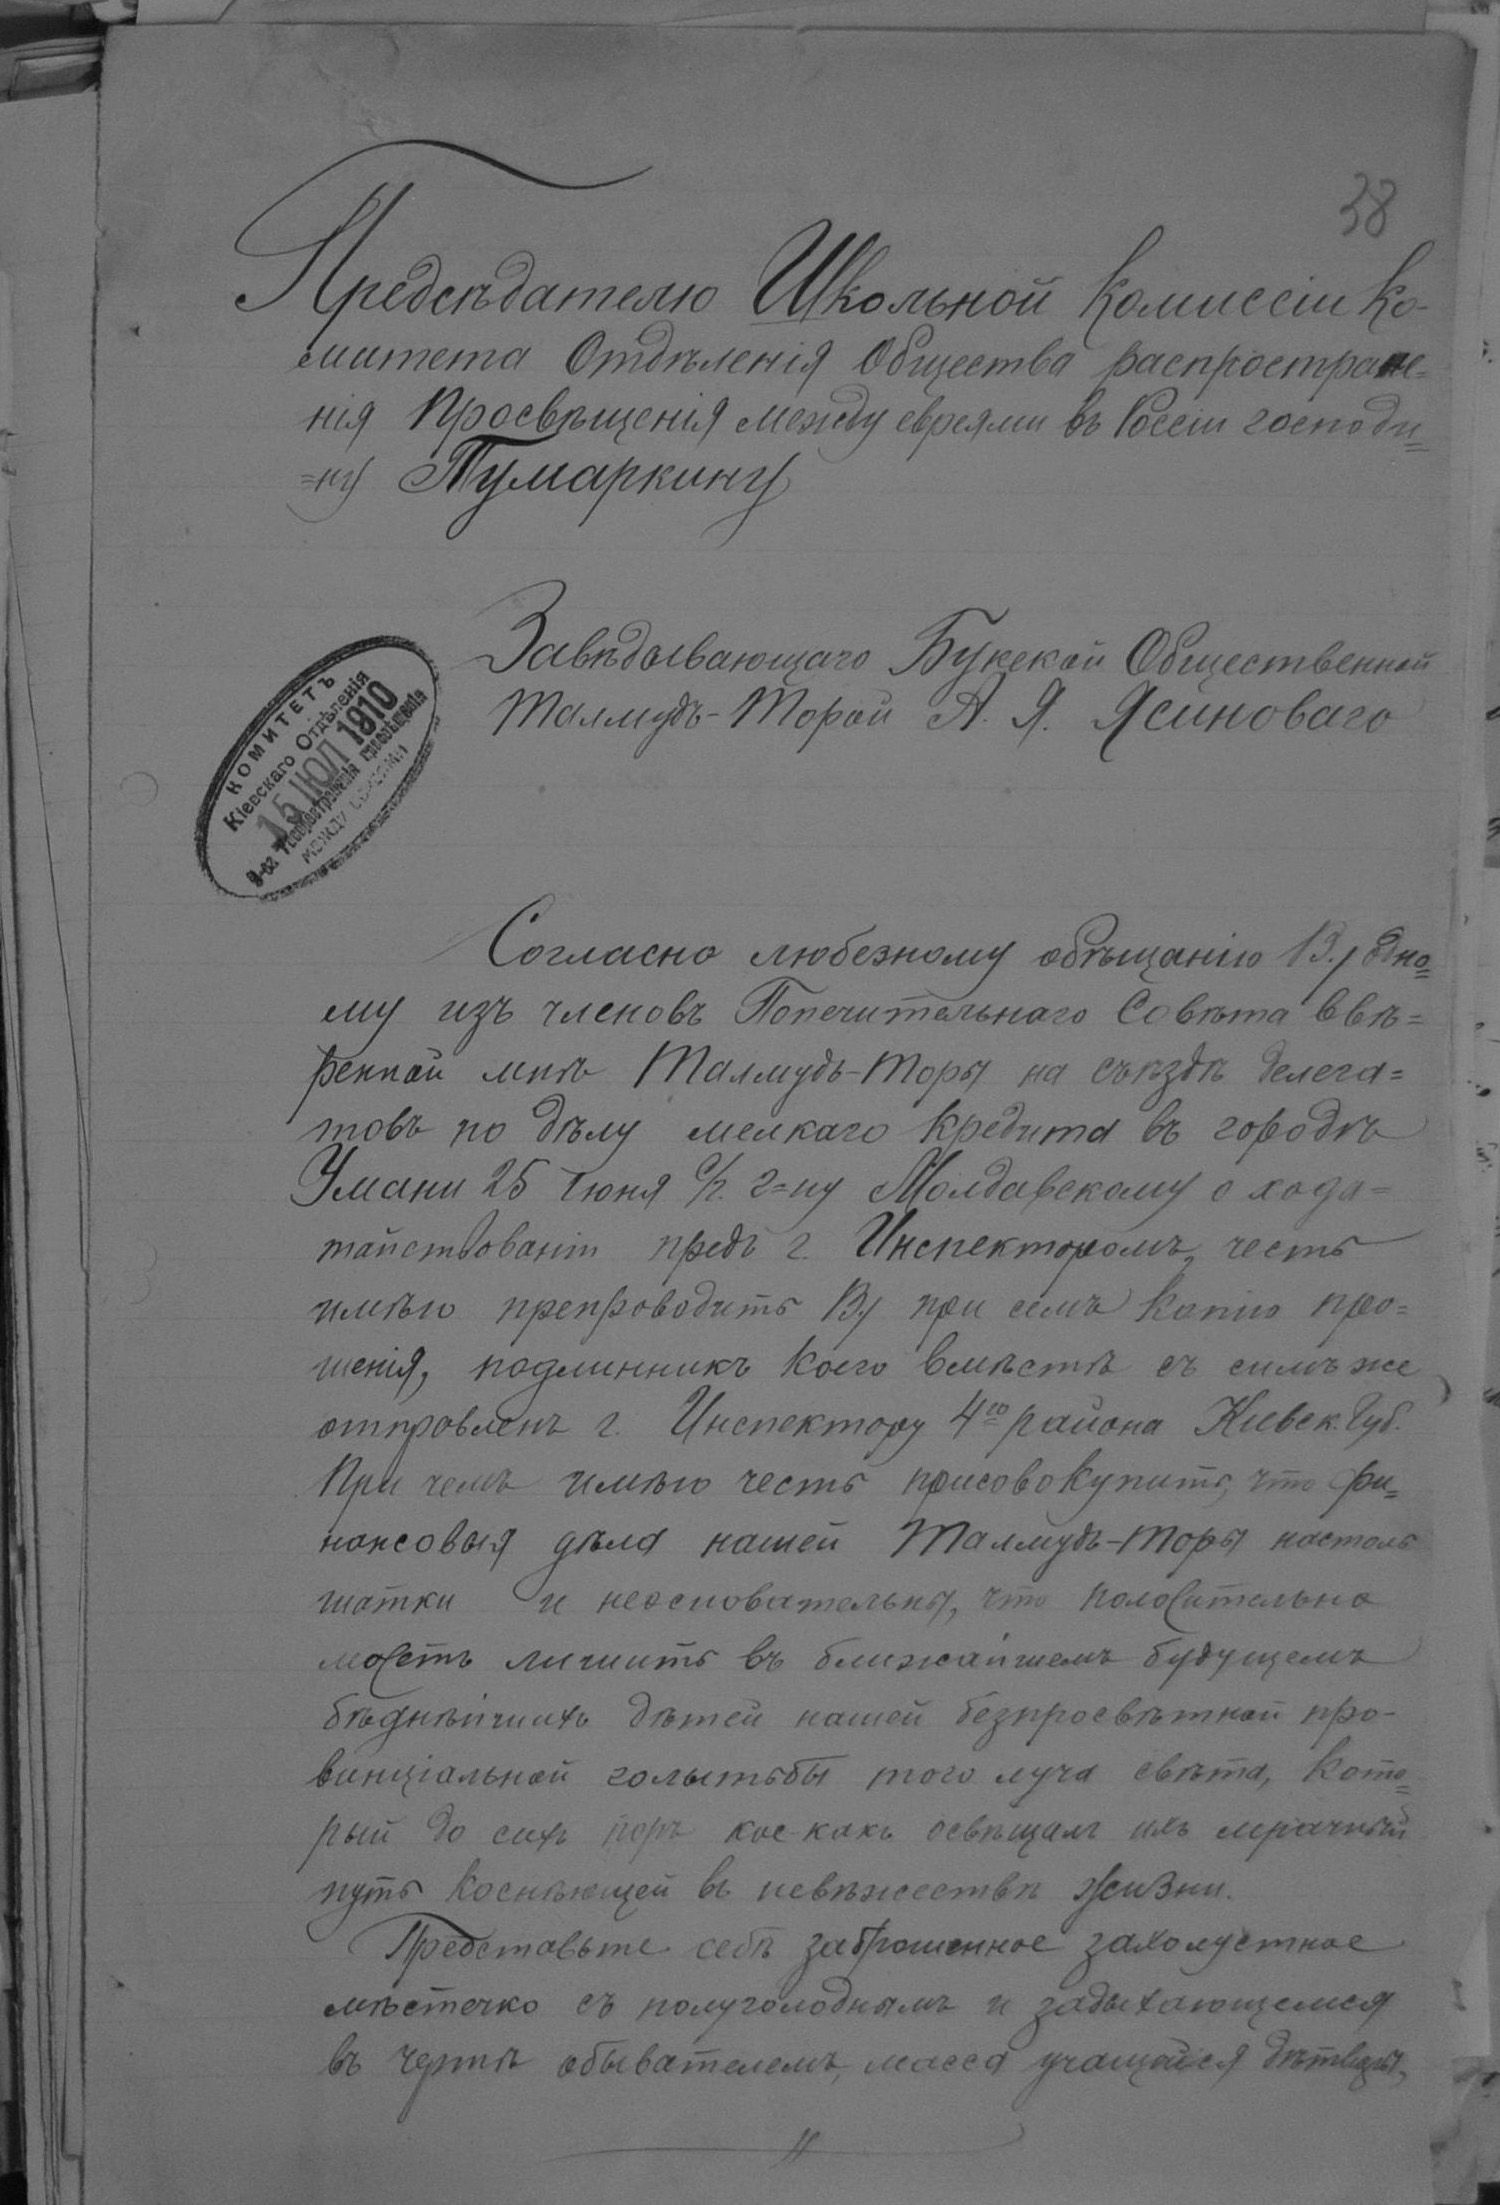 38
Предсѣдателю Школьной Комиссіи Ко-
митета Отдѣленія Общества распростране=
нія Просвѣщенія между евреями въ Россіи господи=
=ну Тумаркину
Завѣдывающаго Букской Общественной
Талмудъ-Торой А. Я. Ясиноваго
КОМИТЕТЪ
Кіевскаго Отдѣленія
15 ІЮЛ 1910
О-ва распространенія просвѣщенія
между евреями
Согласно любезному обѣщанію В., одно=
му изъ членовъ Попечительнаго Совѣта ввѣ=
ренной мнѣ Талмудъ-Торы на съѣздѣ делега=
товъ по дѣлу мелкаго кредита въ городѣ
Умани 25 Іюня с/г. г=ну Молдавскому о хода=
тайствованіи предъ г. Инспекторомъ, честь
имѣю препроводить В, при семъ копію про=
шенія, подлинникъ коего вмѣстѣ съ симъ же
отправленъ г. Инспектору 4го района Кіевск. Губ.
При чемъ имѣю честь присовокупить, что фи=
нансовыя дѣла нашей Талмудъ-Торы настоль
шатки и неосновательны, что положительно
можетъ лишить въ ближайшемъ будущемъ
бѣднѣйшихъ дѣтей нашей безпросвѣтной про-
винціальной голытьбы того луча свѣта, кото=
рый до сихъ поръ кое-какъ освѣщалъ ихъ мрачный
путь коснѣющей въ невѣжествѣ жизни.
Представьте себѣ заброшенное захолустное
мѣстечко съ полуголоднымъ и задыхающемся
въ чертѣ обывателемъ, масса учащейся дѣтворы,